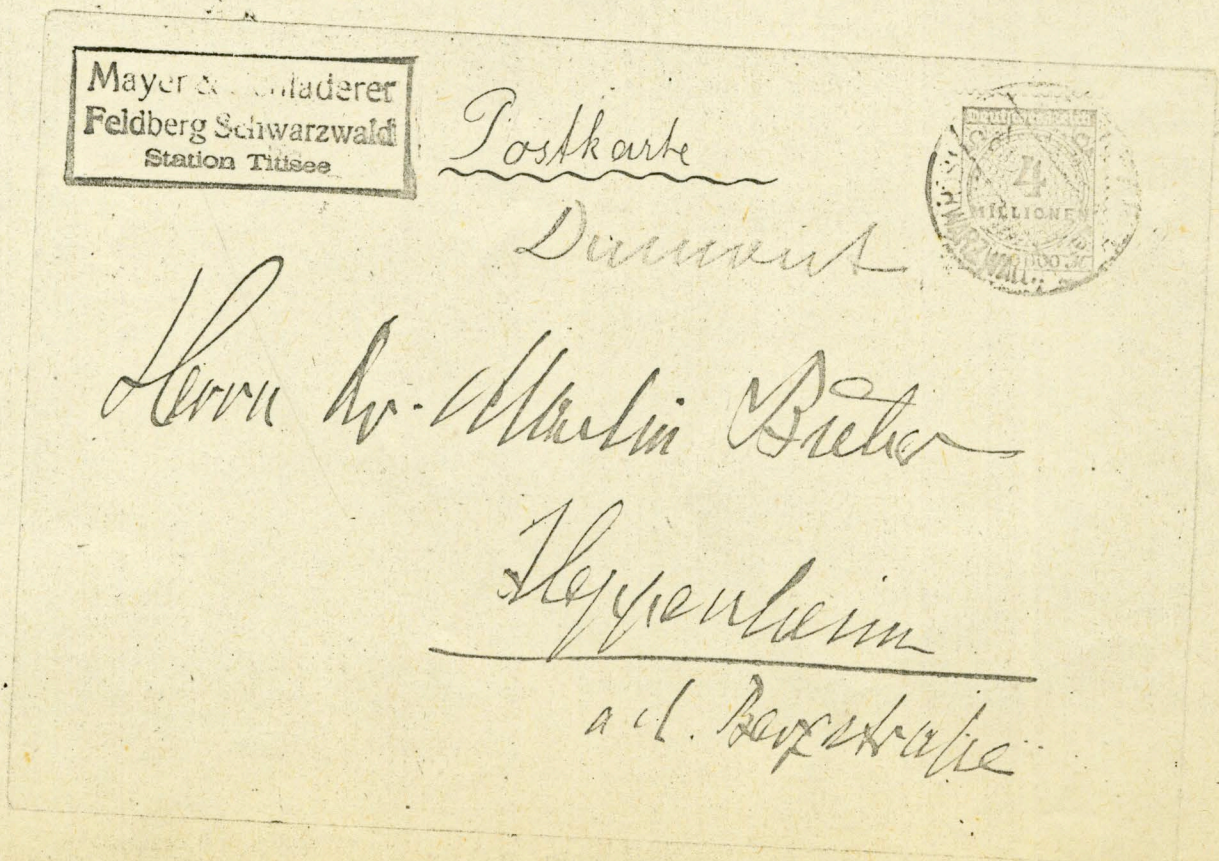 Mayer & Schladerer
Feldberg Schwarzwald
Station Titisee
Postkarte
Dumont
Deutsches Reich
4
MILLIONEN
Herrn Dr. Martin Buber
Heppenheim
a d. Bergstraße